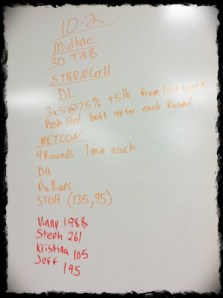 10-2
Midline
30 TGB
STRENGTH
DL
3x5@75% +5lb from last
Push Sled after each Round
METCON
4 Rounds 1 min each
DU
Pull-ups
STOH (135, 95)
Vinny 198
Steph 261
Kristina 105
Jeff 195